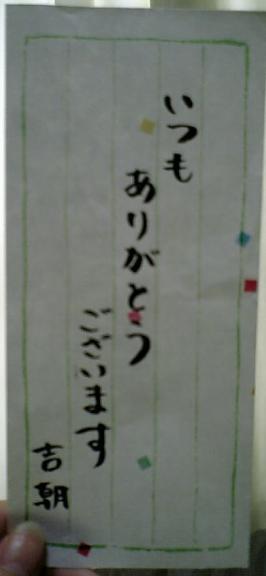 いつも
ありがとう
ございます
吉朝